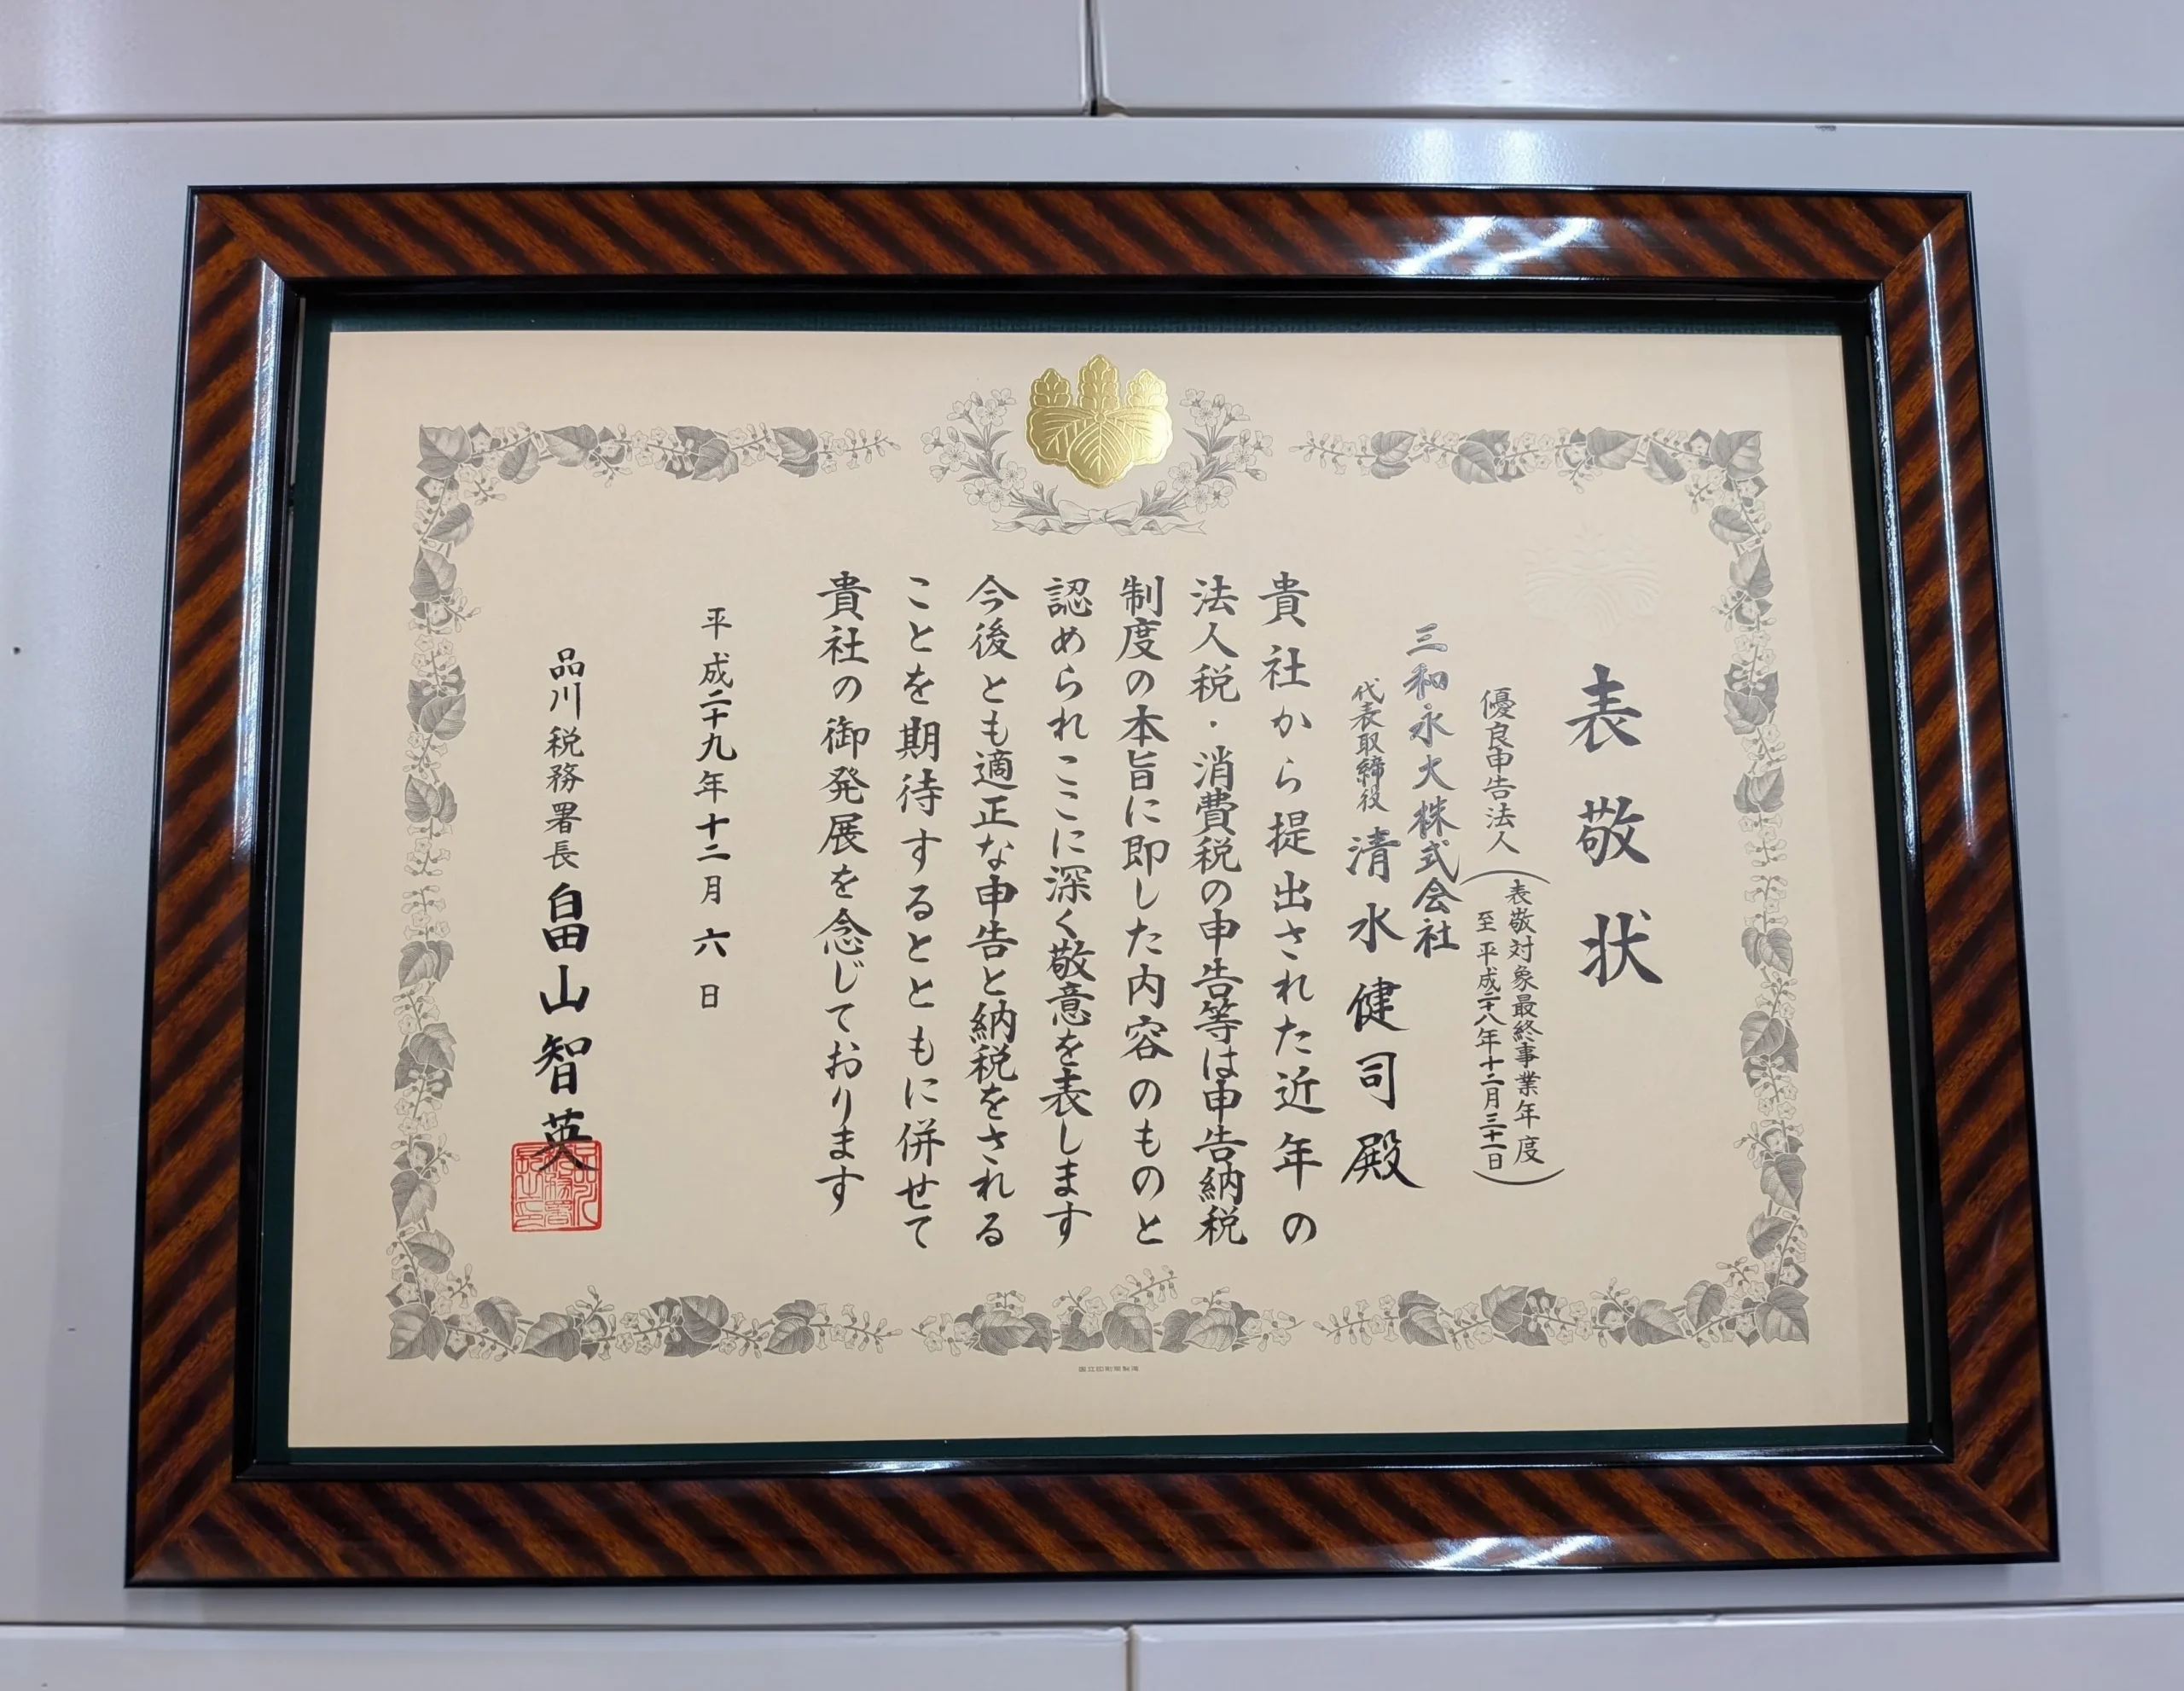 表敬状
優良申告法人
（表敬対象最終事業年度
至 平成二十八年十二月三十一日）
三和永大株式会社
代表取締役 清水健司殿
貴社から提出された近年の
法人税・消費税の申告等は申告納税
制度の本旨に即した内容のものと
認められここに深く敬意を表します
今後とも適正な申告と納税をされる
ことを期待するとともに併せて
貴社の御発展を念じております
平成二十九年十二月六日
品川税務署長 畠山智英
国立印刷局製造